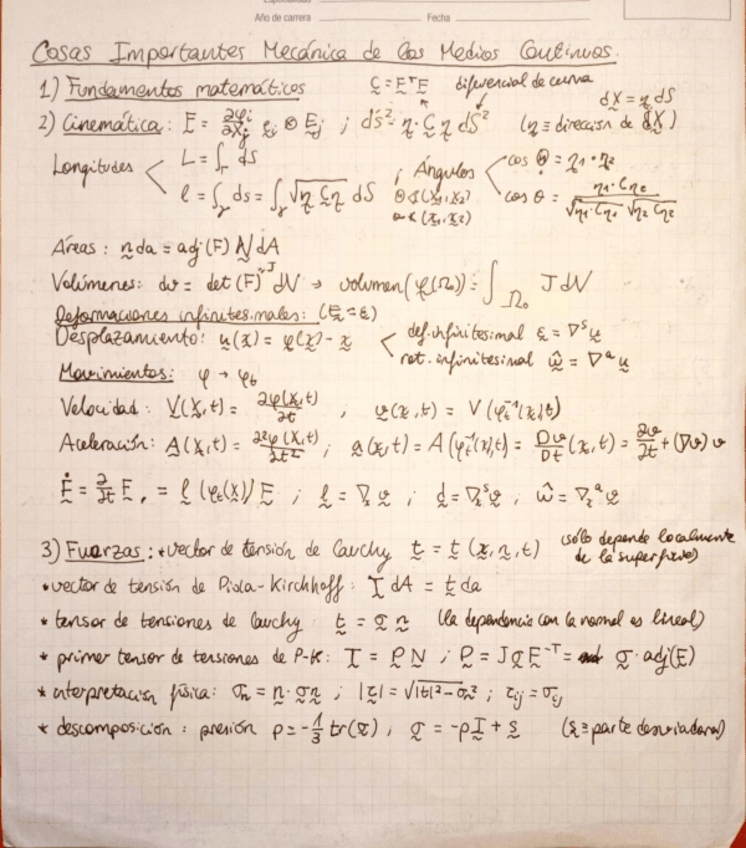 Año de carrera Fecha
Cosas Importantes Mecánica de los Medios Continuos.
1) Fundamentos matemáticos C = FᵀF diferencial de curva
dX = η dS
2) Cinemática: F = ∂φi/∂Xj ei ⊗ Ej ; ds² = η · C η dS² (η ≡ dirección de dX)
Longitudes < L = ∫Γ dS
l = ∫γ ds = ∫γ √(η · Cη) dS
; Ángulos < cos Θ = η1 · η2
Θ ∢ (X1, X2)
cos θ = η1 · Cη2 / √(η1 · Cη1) √(η2 · Cη2)
Áreas: n da = adj(F) N dA
Volúmenes: dv = det(F) dV → volumen(φ(Ω)) = ∫Ω₀ J dV
= J
Deformaciones infinitesimales:
Desplazamiento: u(x) = φ(x) - x < def. infinitesimal ε = ∇ˢu
rot. infinitesimal ŵ = ∇ᵃu
Movimientos: φ → φt
Velocidad: V(X,t) = ∂φ(X,t)/∂t ; v(x,t) = V(φt⁻¹(x),t)
Aceleración: A(X,t) = ∂²φ(X,t)/∂t² ; a(x,t) = A(φt⁻¹(x),t) = Dv/Dt (x,t) = ∂v/∂t + (∇v) v
Ḟ = ∂/∂t F, = l (φt(X)) F ; l = ∇x v ; d = ∇xˢ v ; ŵ = ∇xᵃ v
3) Fuerzas: * vector de tensión de Cauchy t = t (x, n, t) (sólo depende localmente
de la superficie)
• vector de tensión de Piola-Kirchhoff: T dA = t da
* tensor de tensiones de Cauchy: t = σ n (la dependencia con la normal es lineal)
* primer tensor de tensiones de P-K: T = P N ; P = J σ F⁻ᵀ = σ · adj(F)
* interpretación física: σn = n · σn ; |τ| = √(|t|² - σn²) ; τij = σij
* descomposición: presión p = -1/3 tr(σ), σ = -pI + s (s ≡ parte desviadora)